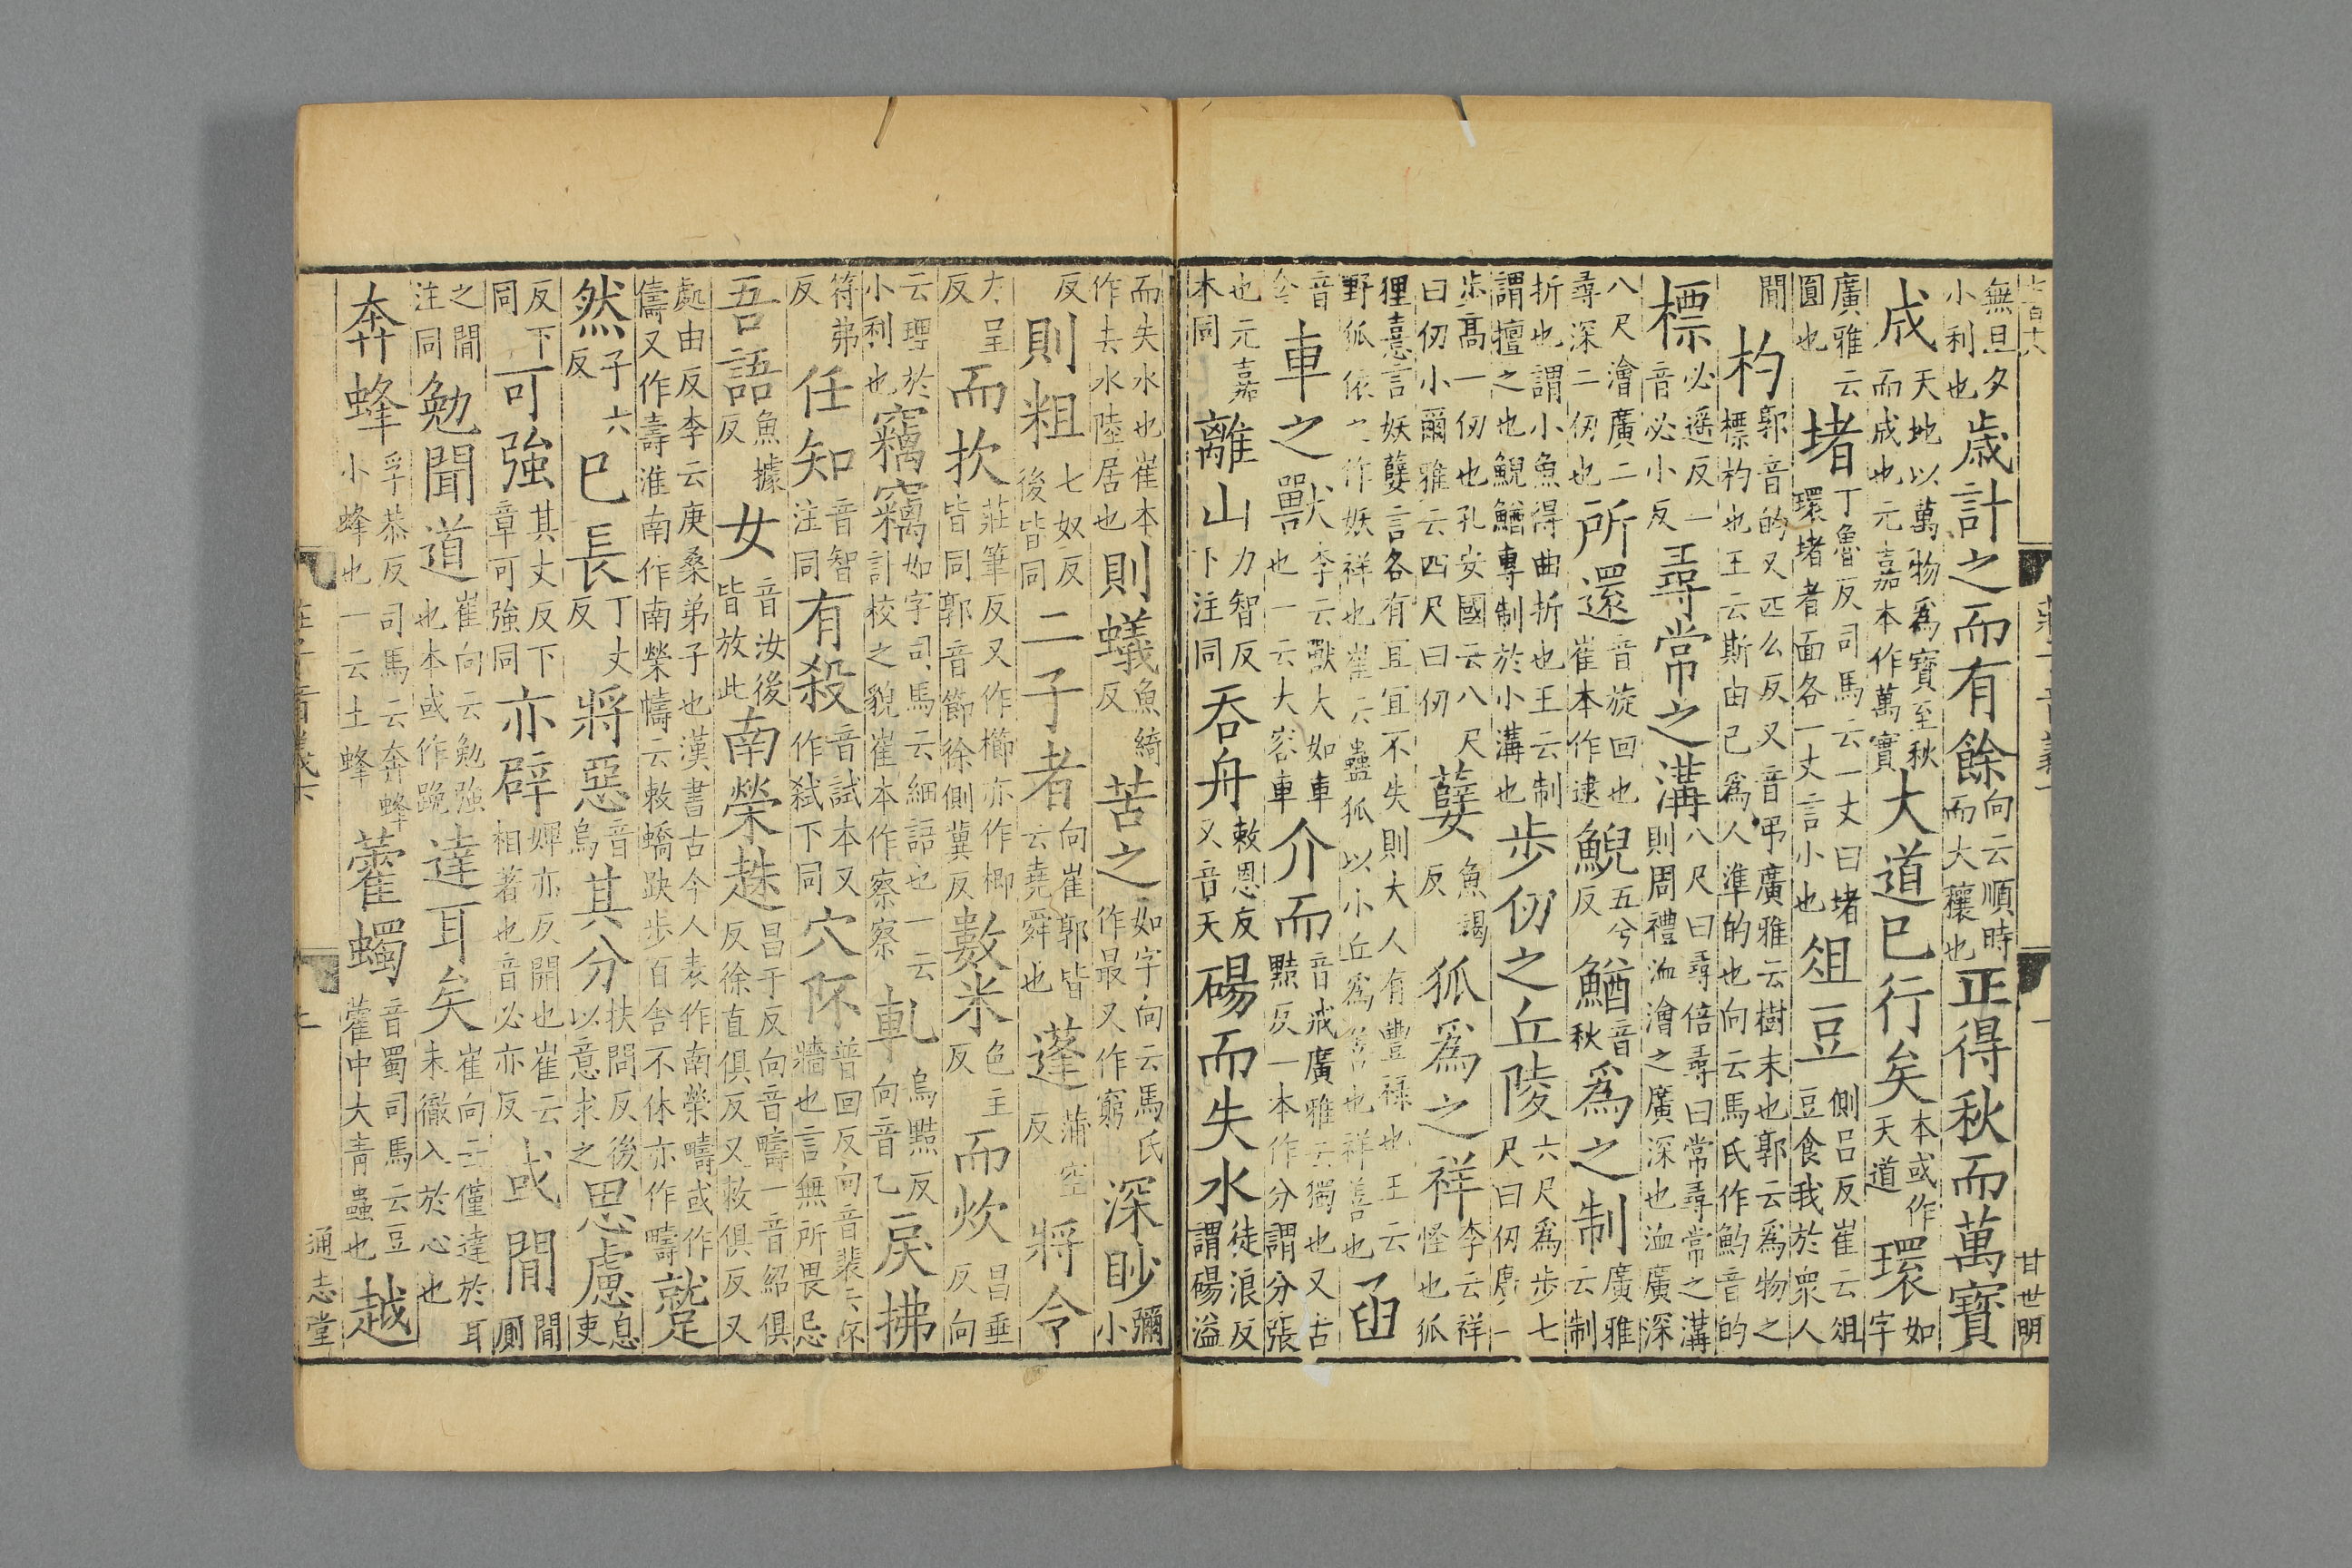 無旦夕小利也歲計之而有餘向云順時而大穰也正得秋而萬寶
成天地以萬物爲寶至秋而成也元嘉本作萬實大道已行矣本或作天道環如字
廣雅云圓也堵丁魯反司馬云一丈曰堵環堵者面各一丈言小也俎豆側吕反崔云俎豆食我於衆人
閒杓郭音的又匹么反又音弔廣雅云樹末也郭云爲物之標杓也王云斯由己爲人準的也向云馬氏作魡音的
標必遥反一音必小反尋常之溝八尺曰尋倍尋曰常尋常之溝則周禮洫澮之廣深也洫廣深
八尺澮廣二尋深二仞也所還音旋回也崔本作逮鯢五兮反鰌音秋爲之制廣雅云制
折也謂小魚得曲折也王云制謂擅之也鯢鰌專制於小溝也步仞之丘陵六尺爲步七尺曰仞廣一
步高一仞也孔安國云八尺曰仞小爾雅云四尺曰仞㜸魚謁反狐爲之祥李云祥怪也狐
狸憙言妖㜸言各有宜宜不失則大人有豐祿也王云野狐依之作妖祥也崔云蠱狐以小丘爲善也祥善也函
音含車之獸李云獸大如車也一云大容車介而音戒廣雅云獨也又古黠反一本作分謂分張
也元嘉本同離山力智反下注同吞舟敕恩反又音天碭而失水徒浪反謂碭溢
而失水也崔本作去水陸居也則蟻魚綺反苦之如字向云馬氏作最又作窮深眇彌小
反則粗七奴反後皆同二子者向崔郭皆云堯舜也蓬蒲空反將令
力呈反而扻莊筆反又作櫛亦作楖皆同郭音節徐側冀反數米色主反而炊昌垂反向
云理於小利也竊竊如字司馬云細語也一云計校之貌崔本作察察軋烏黠反向音乙戾拂
符弗反任知音智注同有殺音試本又作弑下同穴阫普回反向音裴云阫牆也言無所畏忌
吾語魚據反女音汝後皆放此南榮趎昌于反向音疇一音紹俱反徐直俱反又敕俱反又
處由反李云庚桑弟子也漢書古今人表作南榮疇或作儔又作壽淮南作南榮幬云敕蹻趹步百舍不休亦作疇蹵
然子六反已長丁丈反將惡音烏其分扶問反後以意求之思慮息吏
反下同可強其丈反下章可強同亦辟婢亦反開也崔云相著也音必亦反或閒閒厠
之閒注同勉聞道崔向云勉強也本或作跪達耳矣崔向云僅達於耳未徹入於心也
奔蜂孚恭反司馬云奔蜂小蜂也一云土蜂藿蠋音蜀司馬云豆藿中大青蟲也越
通志堂
甘世明